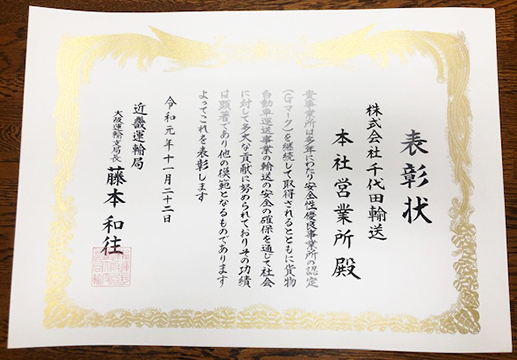 表彰状
株式会社千代田輸送
本社営業所殿
貴事業所は多年にわたり安全性優良事業所の認定
(Gマーク)を継続して取得されるとともに貨物
自動車運送事業の輸送の安全の確保を通じて社会
に対して多大な貢献に努められておりその功績
は顕著であり他の模範となるものであります
よってこれを表彰します
令和元年十一月二十二日
近畿運輸局
大阪運輸支局長 藤本和往